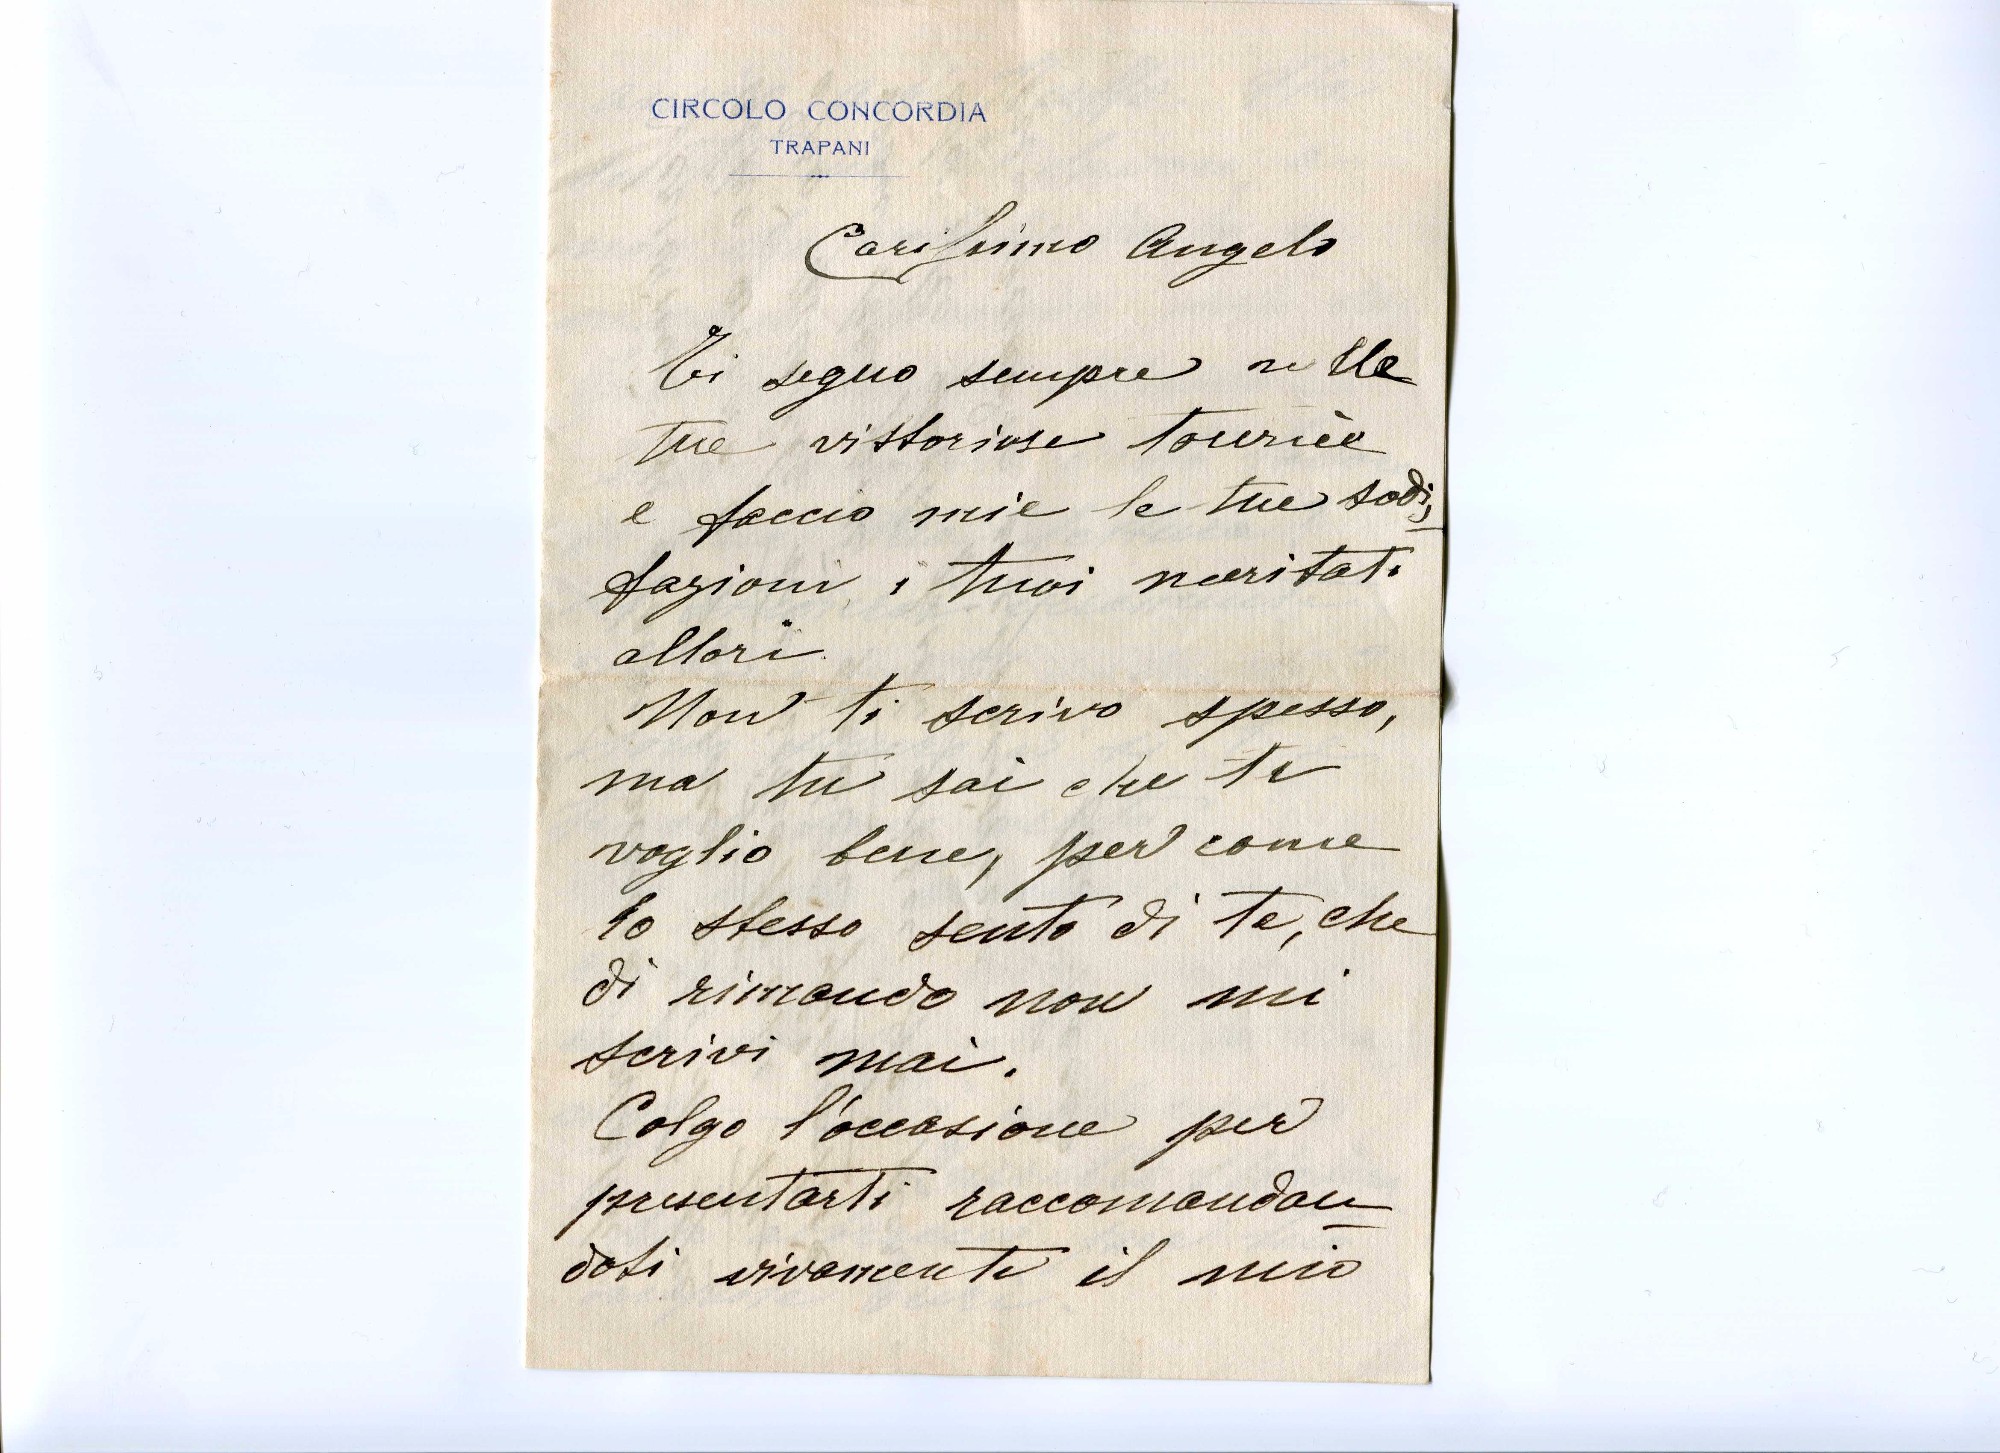 CIRCOLO CONCORDIA
TRAPANI
Carissimo Angelo
Ti seguo sempre nelle
tue vittoriose tourièe
e faccio mie le tue sodi,
fazioni, i tuoi meritati
allori.
Non ti scrivo spesso,
ma tu sai che ti
voglio bene, per come
io stesso sento di te, che
di rimando non mi
scrivi mai.
Colgo l'occasione per
presentarti raccomandan
doti vivamente il mio